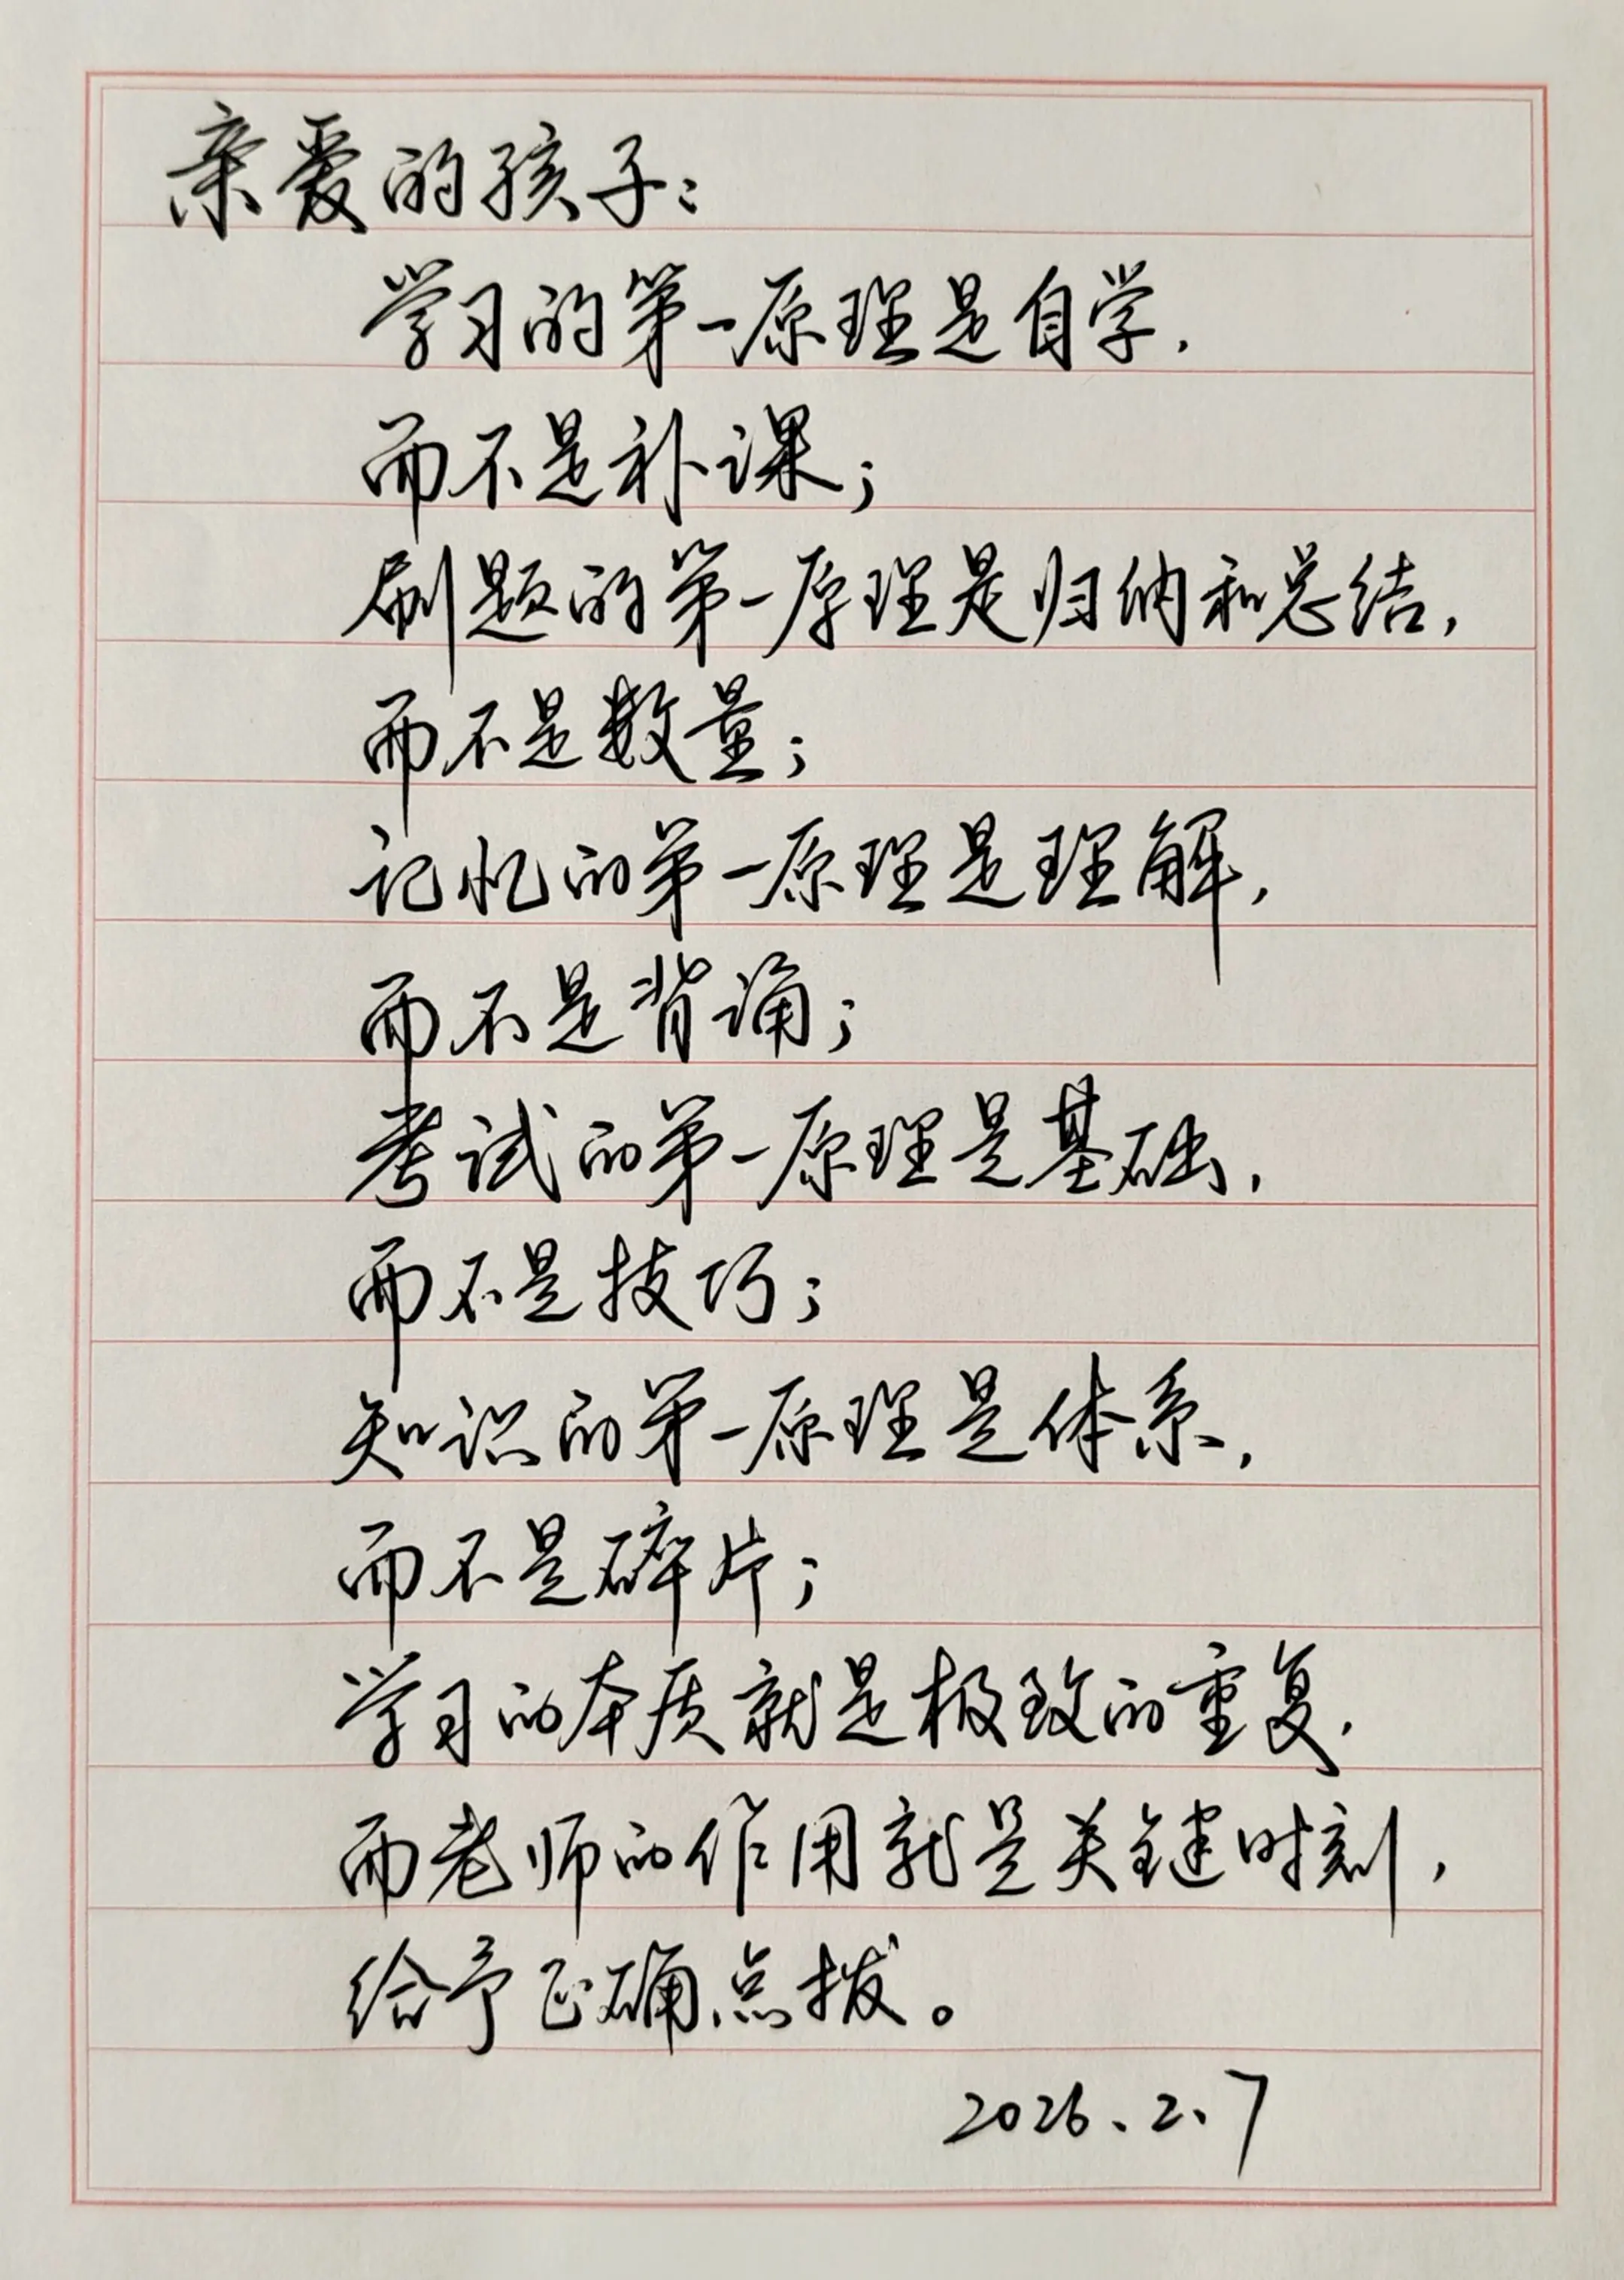 亲爱的孩子：
学习的第一原理是自学，
而不是补课；
刷题的第一原理是归纳和总结，
而不是数量；
记忆的第一原理是理解，
而不是背诵；
考试的第一原理是基础，
而不是技巧；
知识的第一原理是体系，
而不是碎片；
学习的本质就是极致的重复，
而老师的作用就是关键时刻，
给予正确点拨。
2026、2、7